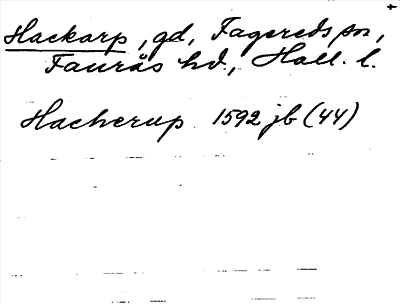 Hackarp, gd, Fagereds sn,
Faurås hd., Hall. l.
Hacherup 1592 jb (44)